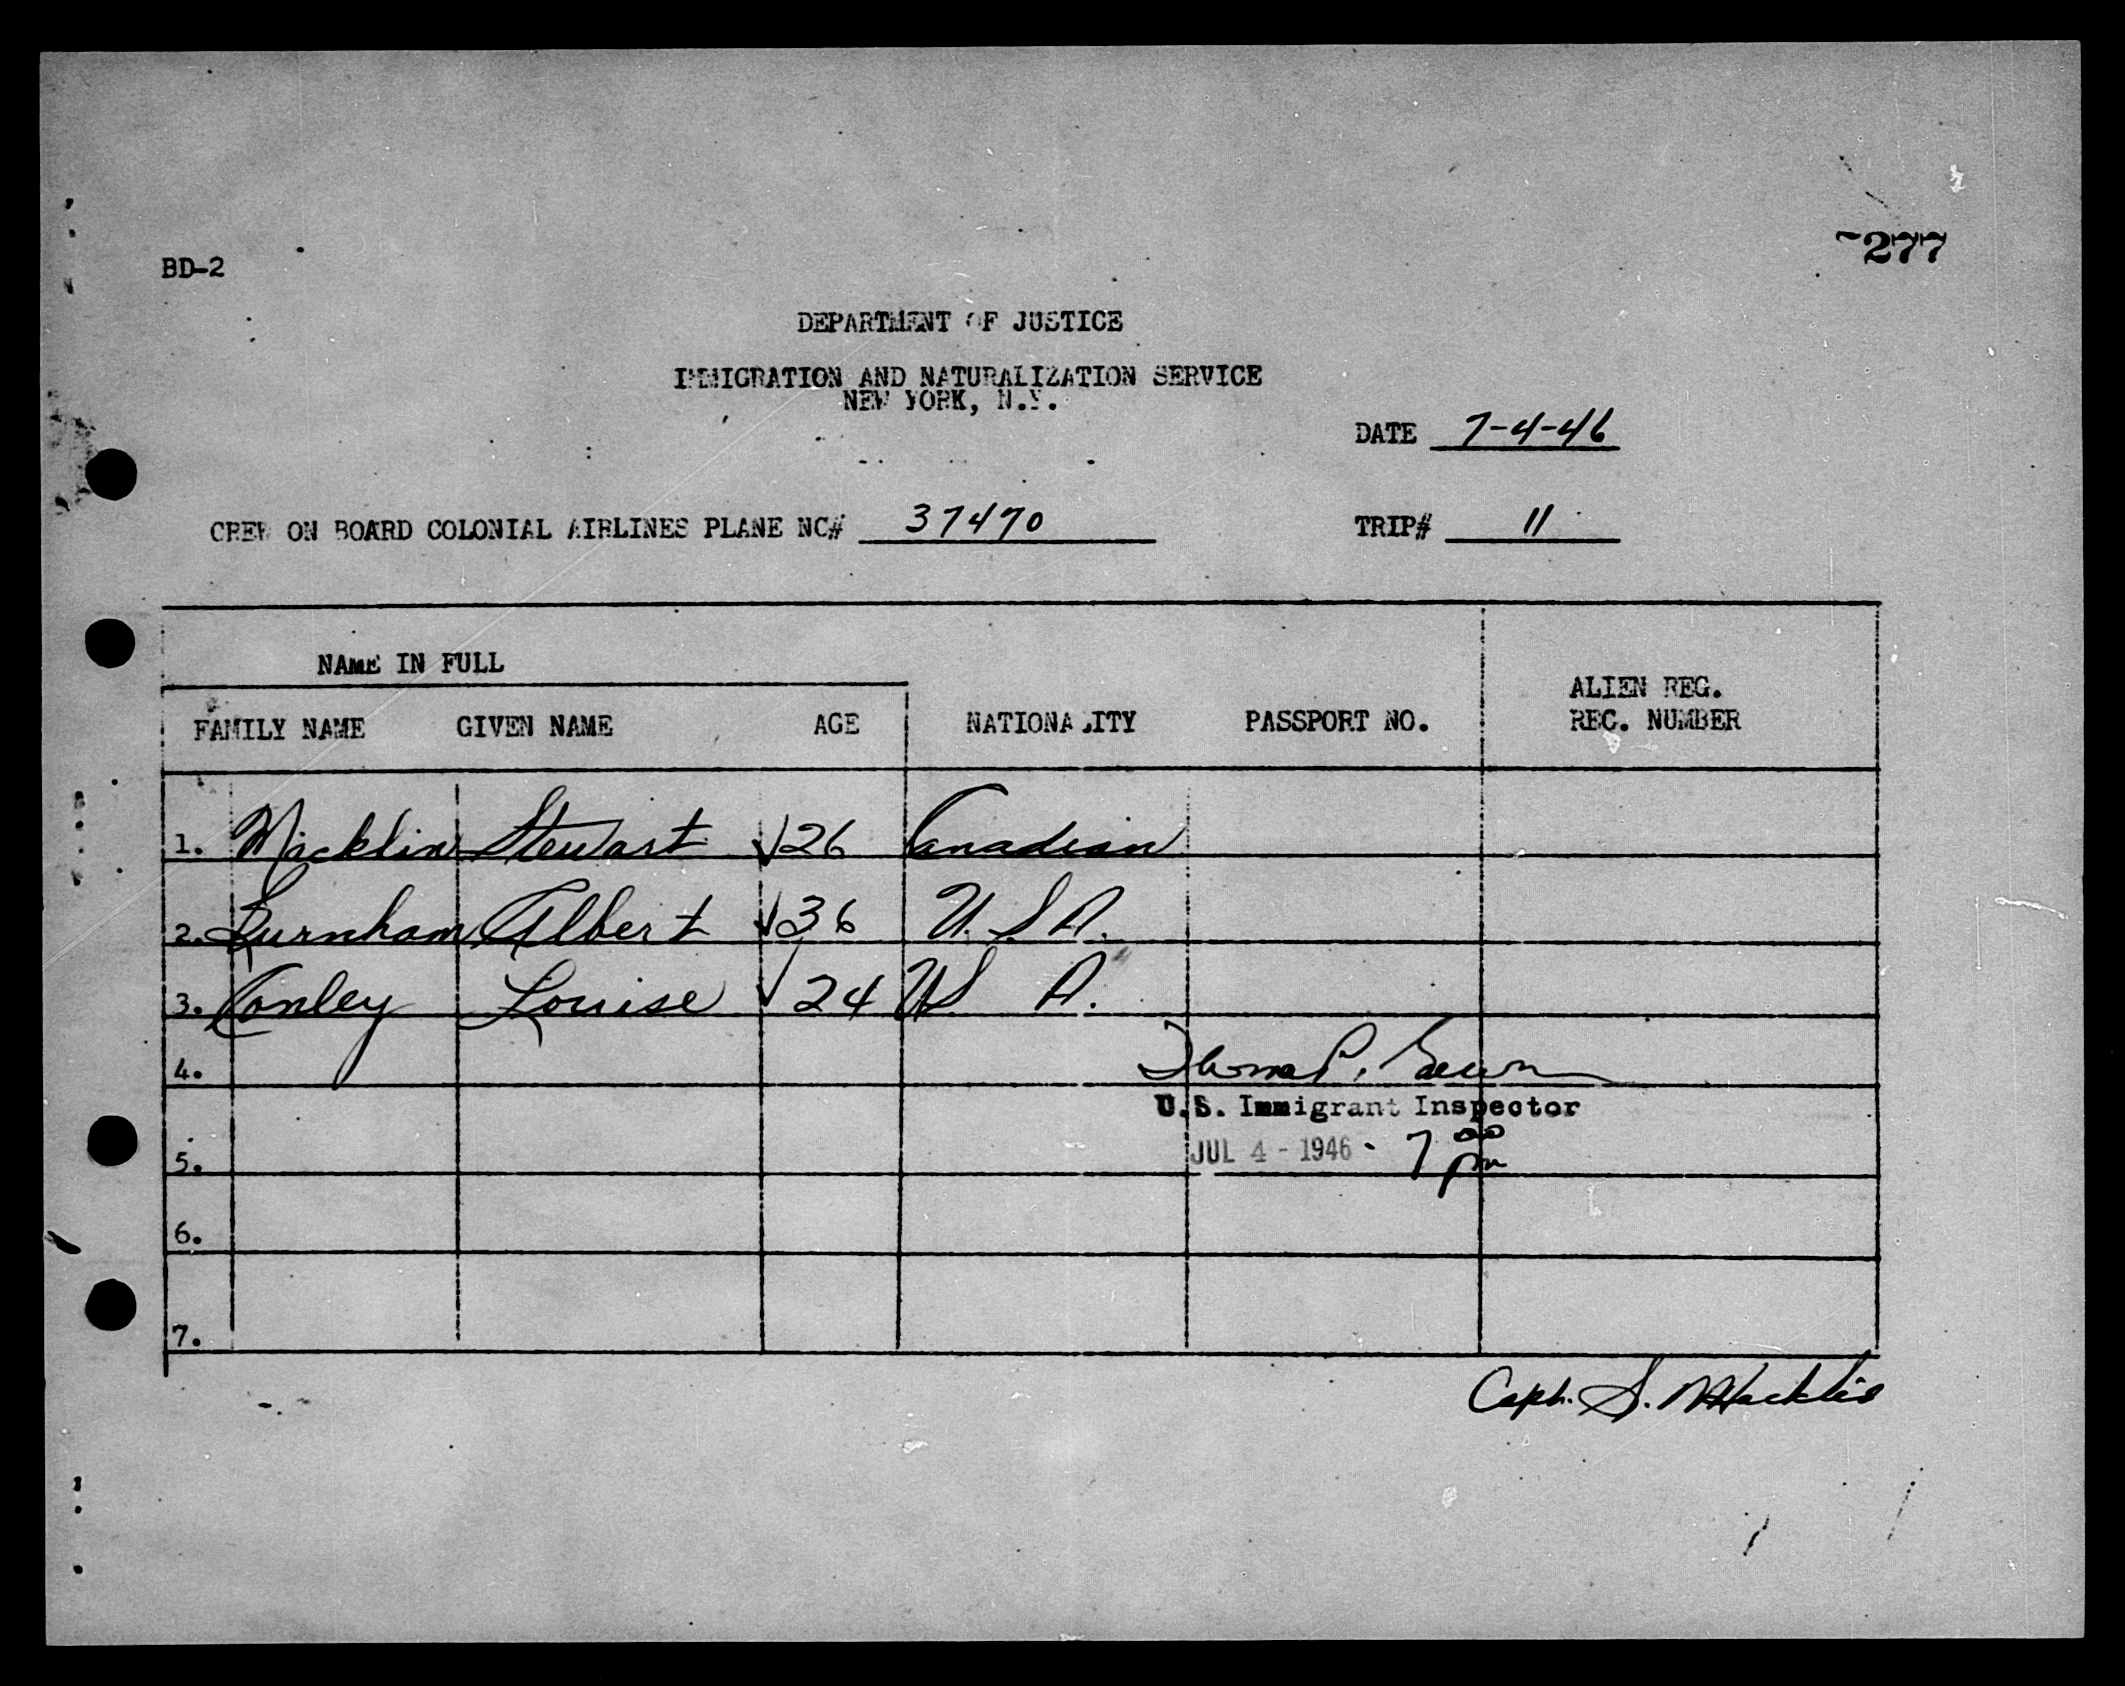 BD-2
277
DEPARTMENT OF JUSTICE
IMMIGRATION AND NATURALIZATION SERVICE
NEW YORK, N.Y.
DATE 7-4-46
CREW ON BOARD COLONIAL AIRLINES PLANE NC# 37470 TRIP# 11
NAME IN FULL
FAMILY NAME GIVEN NAME AGE NATIONALITY PASSPORT NO. ALIEN REG. REC. NUMBER
1. Macklin Stewart √26 Canadian
2. Burnham Albert √36 U.S.A.
3. Conley Louise √24 US A.
4. P.
U.S. Immigrant Inspector
5. JUL 4 - 1946 - 7 00 pm
6.
7.
Capt. S. Macklin